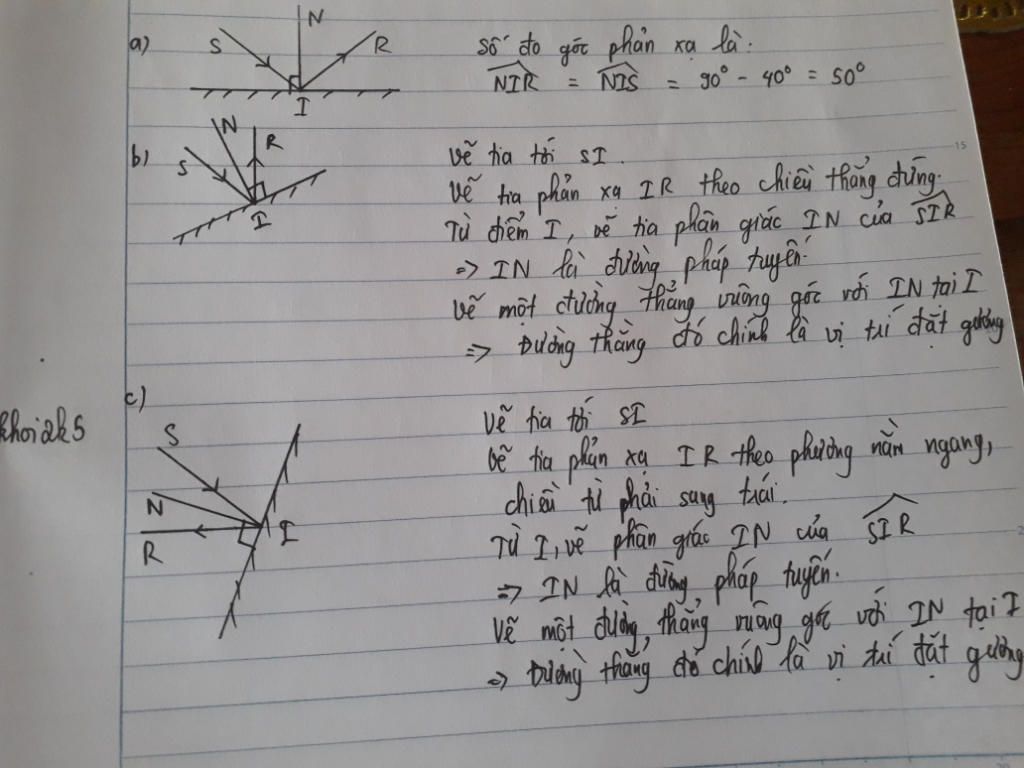 a)
S
N
R
I
số đo góc phản xạ là:
NIR = NIS = 90° - 40° = 50°
b)
S
N
R
I
vẽ tia tới SI.
vẽ tia phản xạ IR theo chiều thẳng đứng.
Từ điểm I, vẽ tia phân giác IN của SIR
=> IN là đường pháp tuyến.
vẽ một đường thẳng vuông góc với IN tại I
=> Đường thẳng đó chính là vị trí đặt gương
khoi2k5
c)
S
N
R
I
vẽ tia tới SI
vẽ tia phản xạ IR theo phương nằm ngang,
chiều từ phải sang trái.
Từ I, vẽ phân giác IN của SIR
=> IN là đường pháp tuyến.
vẽ một đường thẳng vuông góc với IN tại I
=> Đường thẳng đó chính là vị trí đặt gương
15